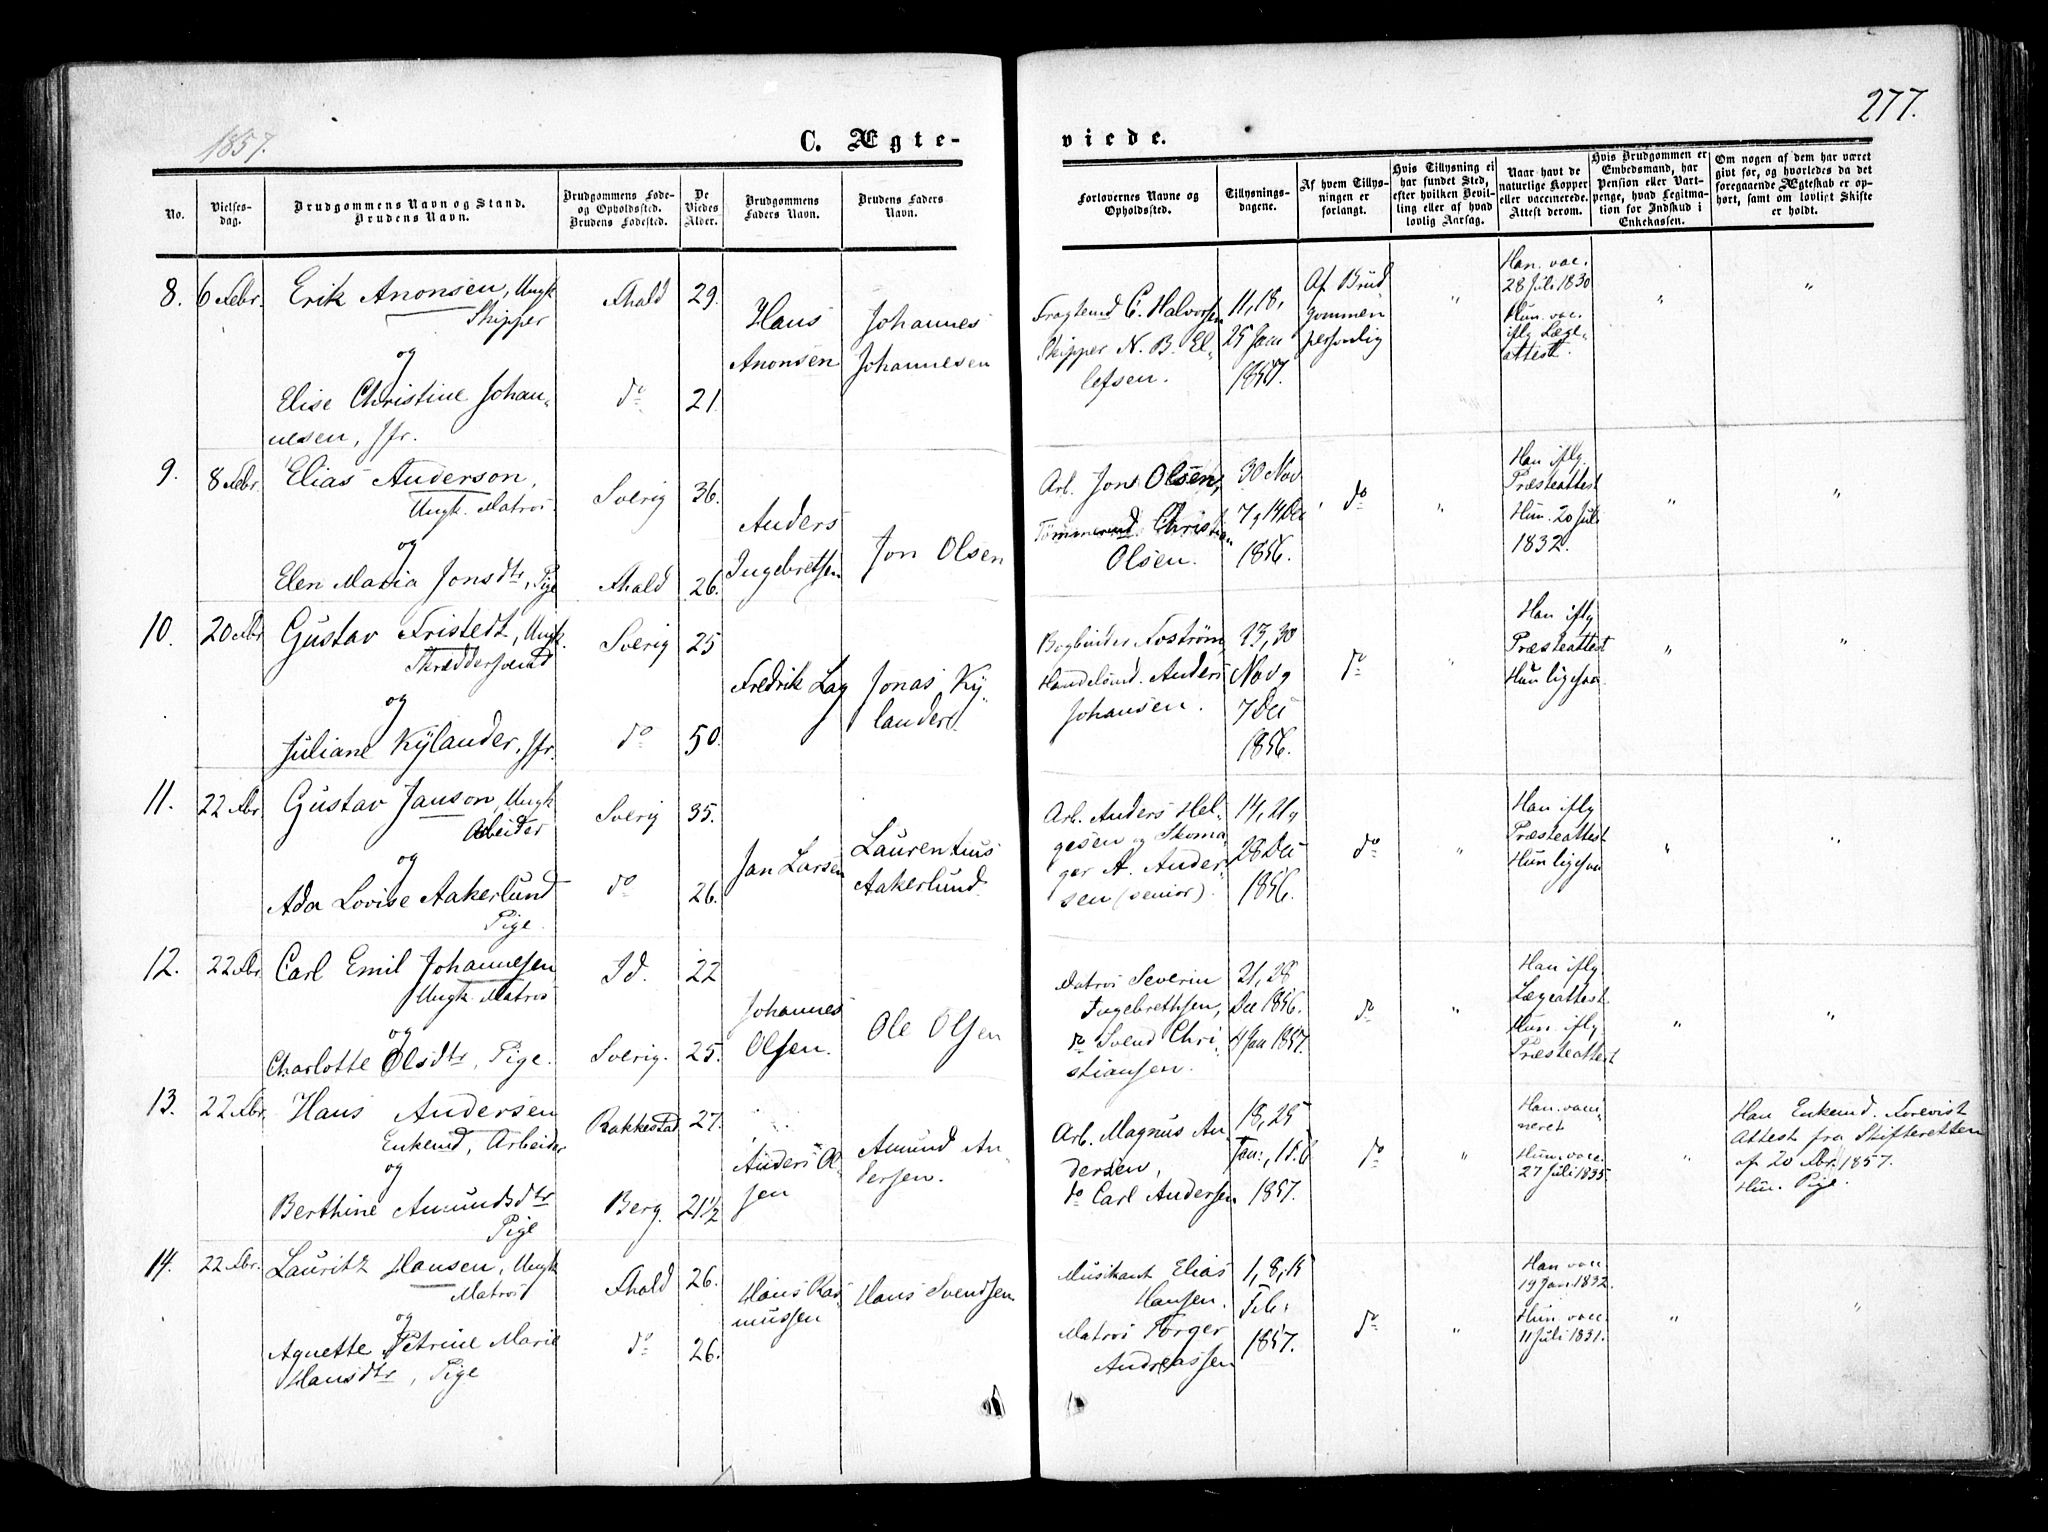 277.
1857.
C. Ægte-
viede.
No.
Vielses-
dag.
Brudgommens Navn og Stand.
Brudens Navn.
Brudgommens Føde-
og Opholdssted.
Brudens Fødested.
De
Viedes
Alder.
Brudgommens
Faders Navn.
Brudens Faders
Navn.
Forlovernes Navne og
Opholdssted.
Tillysnings-
dagene.
Af hvem Tillys-
ningen er
forlangt.
Hvis Tillysning ei
har fundet Sted,
efter hvilken Bevil-
ling eller af hvad
lovlig Aarsag.
Naar havt de
naturlige Kopper
eller vaccinerede.
Attest derom.
Hvis Brudgommen er
Embedsmand, har
Pension eller Vart-
penge, hvad Legitma-
tion for Indskud i
Enkekassen.
Om nogen af dem har været
givt før, og hvorledes da det
foregaaende Ægteskab er op-
hørt, samt om lovligt Skifte
er holdt.
8. 6 Febr. Erik Anonsen, Ungk.
Skipper
og
Elise Christine Johan-
nesen, Jfr.
Fhald 29.
do 21.
Hans
Anonsen
Johannes
Johannesen
Fragtemd C. Halvorsen
Skipper N. B. El-
lefsen.
11, 18,
25 Jan
1857.
Af Brud
gommen
personlig
"
Han vac.
28 Juli 1830
Hun vac.
iflg Læge-
attest.
"
"
9. 8 Febr. Elias Anderson,
Ungk. Matros
og
Elen Maria Jonsdtr, Pige
Sverig 36.
Fhald 26.
Anders
Ingebretsen
Jon Olsen
Arb. Jons Olsen,
Tømmermd. Christian
Olsen.
30 Nov
7 og 14 Dec
1856.
do
"
Han iflg.
Præsteattest
Hun 20 Juli
1832.
"
"
10. 20 Fbr Gustav Fristedt, Ungk.
Skræddersvend
og
Juliane Kÿlander, Jfr.
Sverig 25
do 50.
Fredrik Lag
Jonas Kÿ-
lander
Bogbinder Fostrøm,
Handelsmd. Anders
Johansen.
23, 30
Nov og
7 Dec
1856.
do
"
Han iflg
Præsteattest
Hun ligesaa
"
"
11. 22 Fbr. Gustav Janson, Ungk
Arbeider
og
Ada Lovise Aakerlund
Pige.
Sverig 35.
do 26.
Jan Larsen
Laurentius
Aakerlund.
Arb. Anders Hel-
gesen og Skoma-
ger A. Ander-
sen (senior).
14, 21 og
28 Dec
1856.
do
"
Han iflg
Præsteattest
Hun ligesaa
"
"
12. 22 Fbr. Carl Emil Johannesen
Ungk. Matros
og
Charlotte Olsdtr, Pige.
Id. 22
Sverig. 25.
Johannes
Olsen.
Ole Olsen
Matros Severin
Ingebrethsen,
do Svend Chri-
stiansen.
21, 28
Dec 1856.
4 Jan 1857.
do
"
Han iflg.
Lægeattest.
Hun iflg
Præsteattest
"
"
13. 22 Fbr. Hans Andersen
Enkemd, Arbeider
og
Berthine Amundsdtr
Pige
Rakkestad 27.
Berg. 21 1/2
Anders Ol-
sen
Amund An-
dersen.
Arb. Magnus An
dersen,
do Carl Andersen
18, 25
Jan:,
1857.
do
"
Han vacci-
neret
Hun vacc.
27 Juli 1835
"
Han Enkemd. Forevist
Attest fra Skifteretten
af 20 Fbr. 1857.
Hun Pige.
14. 22 Fbr. Lauritz Hansen, Ungk
Matros
og
Agnette Petrine Marie
Hansdtr, Pige
Fhald 26.
do 26.
Hans Ras
mussen
Hans Svendsen.
Musikant Elias
Hansen.
Matros Torger
Andreassen
1, 8, 15
Feb.
1857.
do
"
Han vacc
19 Jan 1832.
Hun vacc.
11 Juli 1831.
"
"